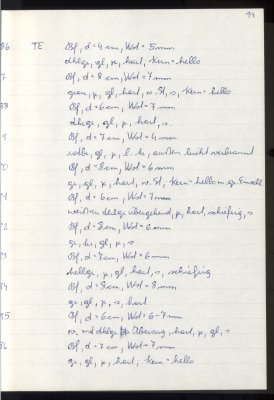 91
86 TE Bf, d = 4 cm, Wst = 5 mm
dklge, gl, k, hart, Kern = hello
7 Bf, d = 8 cm, Wst = 7 mm
grau, k, gl, hart, w. St, s, Kern = hello
88 Bf, d = 6 cm, Wst = 7 mm
dklge, gl, k, hart, s
9 Bf, d = 7 cm, Wst = 4 mm
gl, k, außen leicht verbrannt
90 Bf, d = 8 cm, Wst = 6 mm
gr, gl, k, hart, w. St, Kern = hello m. gr.
91 Bf, d = 6 cm, Wst = 7 mm
übergehend, k, hart, schiefrig, s
92 Bf, d = 8 cm, Wst = 6 mm
gr, gl, k, s
93 Bf, d = 7 cm, Wst = 6 mm
hellge, k, gl, hart, s, schiefrig
94 Bf, d = 8 cm, Wst = 8 mm
gr, gl, k, s, hart
95 Bf, d = 6 cm, Wst = 6-7 mm
mit dklge Überzug, hart, k, gl, s
Bf, d = 7 cm, Wst = 7 mm
gr, gl, k, hart, Kern = hello